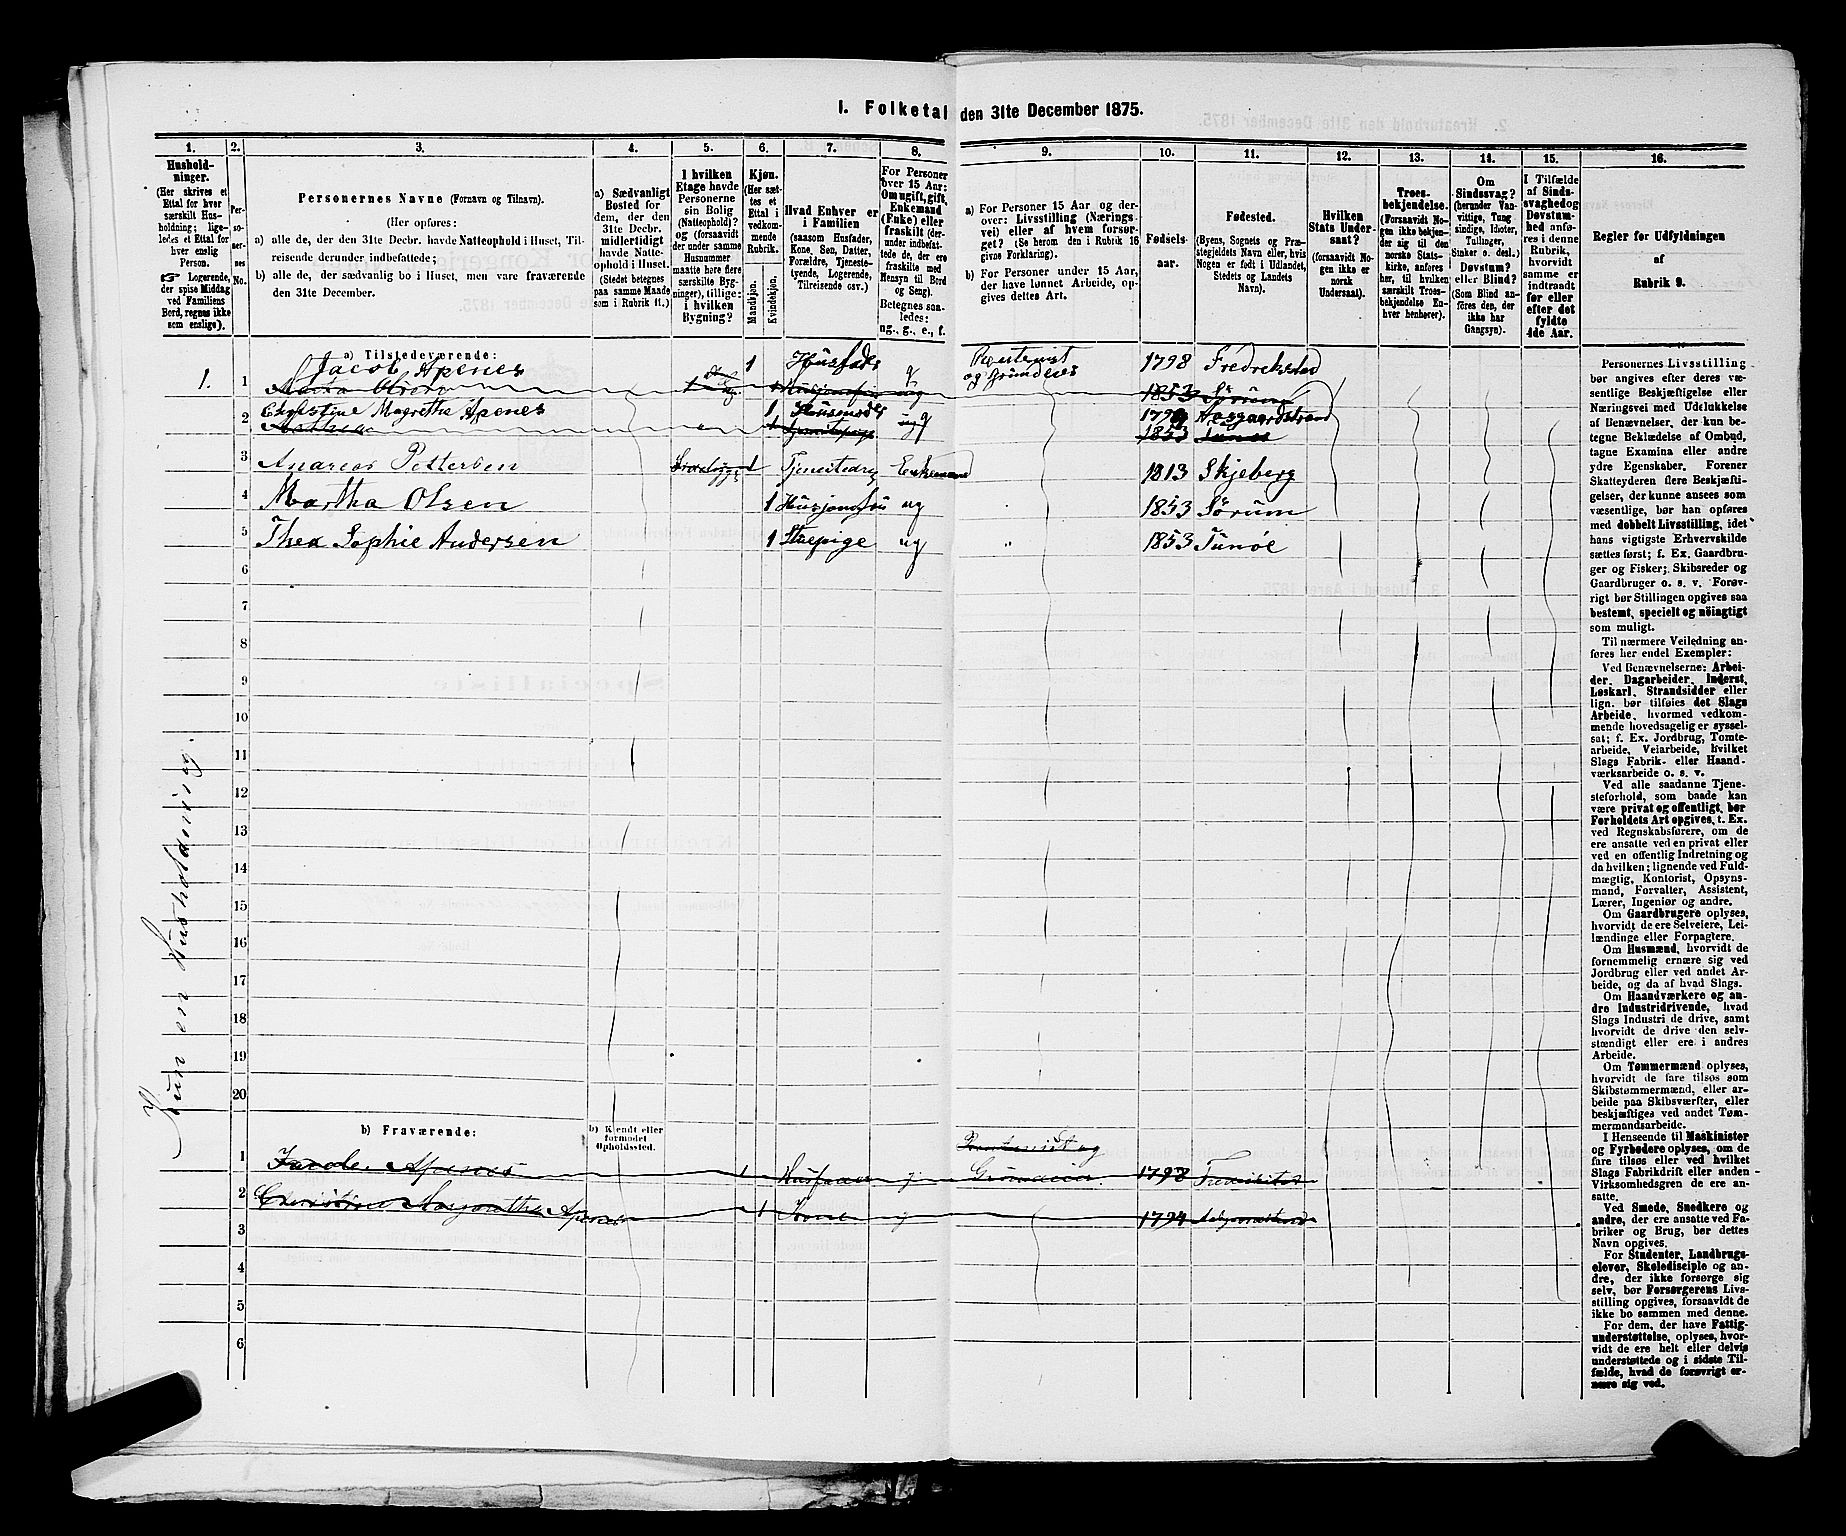 I. Folketal den 31te December 1875.
1. 2. 3. 4. 5. 6. 7. 8. 9. 10. 11. 12. 13. 14. 15. 16.
Husholdninger.
(Her skrives et
Ettal for hver
særskilt Husholdning; ligeledes et Ettal for
hver enslig
Person.
Logerende,
der spise Middag
ved Familiens
Bord, regnes ikke
som enslige).
Personernes No.
Personernes Navne (Fornavn og Tilnavn).
(Her opføres:
a) alle de, der den 31te Decbr. havde Natteophold i Huset, Tilreisende derunder indbefattede;
b) alle de, der sædvanlig bo i Huset, men vare fraværende
den 31te December.
a) Sædvanligt
Bosted for
dem, der den
31te Decbr.
midlertidigt
havde Natteophold i Huset.
(Stedet betegnes
paa samme Maade
som i Rubrik 11.)
I hvilken
Etage havde
Personerne
sin Bolig
(Natteophold)?
og (forsaavidt
der under samme
Husnummer
maatte høre flere
særskilte Bygninger), tillige:
i hvilken
Bygning?
Kjøn.
(Her sættes et
Ettal i
vedkommende
Rubrik.
Mandkjøn.
Kvindekjøn.
Hvad Enhver er
i Familien
(saasom Husfader,
Kone, Søn, Datter,
Forældre, Tjenestetyende, Logerende,
Tilreisende osv.)
For Personer
over 15 Aar:
Om ugift, gift,
Enkemand
(Enke) eller
fraskilt (derunder indbefattede de, der ere
fraskilte med
Hensyn til Bord
og Seng).
Betegnes saaledes:
ug., g., e., f.
a) For Personer 15 Aar og derover: Livsstilling (Næringsvei) eller af hvem forsørget? (Se herom den i Rubrik 16
givne Forklaring).
b) For Personer under 15 Aar,
der have lønnet Arbeide, opgives dettes Art.
Fødselsaar.
Fødested.
(Byens, Sognets og Præstegjeldets Navn eller, hvis
Nogen er født i Udlandet,
Stedets og Landets
Navn).
Hvilken
Stats Undersaat?
(forsaavidt Nogen ikke er
norsk
Undersaat).
Troesbekjendelse.
(Forsaavidt Nogen ikke bekjender sig til den
norske Statskirke, anføres
her, til hvilken
særskilt Troesbekjendelse Enhver henhører).
Om
Sindssvag?
(herunder Vanvittige, Tungsindige, Idioter,
Tullinger,
Sinker o. desl.)
Døvstum?
eller Blind?
(Som Blind anføres den, der
ikke har
Gangsyn).
I Tilfælde
af Sindssvaghed og
Døvstumhed anføres i denne
Rubrik,
hvorvidt
samme er
indtraadt
før eller
efter det
fyldte
4de Aar.
Regler for Udfyldningen
af
Rubrik 9.
a) Tilstedeværende:
1. Jacob Apenes 1 Husfader g og Grundeier 1798
1
Christine Magrethe Apenes 1 Husmoder g Aasgaardstrand
2
3 Andreas Pettersen 1 Enkemand 1813 Skjeberg
4 Martha Olsen 1 ug 1853 Sørum
5 Thea Sophie Andersen 1 Stuepige ug 1853 Tunøe
6
7
8
9
10
11
12
13
14
15
16
17
18
19
20
Kun en Husholdning
b) Fraværende:
b) Kjendt eller
formodet
Opholdssted.
1 Jacob Apenes 1 Husfader g Grundeier 1798
2 Apenes 1 Kone g 1794
3
4
5
6
Personernes Livsstilling
bør angives efter deres væsentlige Beskjæftigelse eller
Næringsvei med Udelukkelse
af Benævnelser, der kun betegne Beklædelse af Ombud,
tagne Examina eller andre
ydre Egenskaber. Forener
Skatteyderen flere Beskjæftigelser, der kunne ansees som
væsentlige, bør han opføres
med dobbelt Livsstilling, idet
hans vigtigste Erhvervskilde
sættes først; f. Ex. Gaardbruger og Fisker; Skibsreder og
Gaardbruger o. s. v. Forøvrigt bør Stillingen opgives saa
bestemt, specielt og nøiagtigt
som muligt.
Til nærmere Veiledning anføres her endel Exempler:
Ved Benævnelserne: Arbeider, Dagarbeider, Inderst,
Løskarl, Strandsidder eller
lign. bør tilføies det Slags
Arbeide, hvormed vedkommende hovedsagelig er sysselsat; f. Ex. Jordbrug, Tømtearbeide, Veiarbeide, hvilket
Slags Fabrik- eller Haandværksarbeide o. s. v.
Ved alle saadanne Tjenesteforhold, som baade kan
være privat og offentligt, bør
Forholdets Art opgives, t. Ex.
ved Regnskabsførere, om de
ere ansatte ved en privat eller
ved en offentlig Indretning og
da hvilken; lignende ved Fuldmægtig, Kontorist, Opsynsmand, Forvalter, Assistent,
Lærer, Ingeniør og andre.
Om Gaardbrugere oplyses,
hvorvidt de ere Selveiere, Leilændinge eller Forpagtere.
Om Husmænd, hvorvidt de
fornemmelig ernære sig ved
Jordbrug eller ved andet Arbeide, og da af hvad Slags.
Om Haandværkere og andre Industridrivende, hvad
Slags Industri de drive, samt
hvorvidt de drive den selvstændigt eller ere i andres
Arbeide.
Om Tømmermænd oplyses,
hvorvidt de fare tilsøs som
Skibstømmermænd, eller arbeide paa Skibsværfter, eller
beskjæftiges ved andet Tømmermandsarbeide.
I Henseende til Maskinister
og Fyrbødere oplyses, om de
fare tilsøs eller ved hvilket
Slags Fabrikdrift eller anden
Virksomhedsgren de ere ansatte.
Ved Smede, Snedkere og
andre, der ere ansatte ved Fabriker og Brug, bør dettes
Navn opgives.
For Studenter, Landbrugselever, Skoledisciple og andre, der ikke forsørge sig
selv, bør Forsørgerens Livsstilling opgives, forsaavidt de
ikke bo sammen med denne.
For dem, der have Fattigunderstøttelse, oplyses, hvorvidt de ere helt eller delvis
understøttede og i sidste Tilfælde, hvad de forøvrigt ernære sig ved.